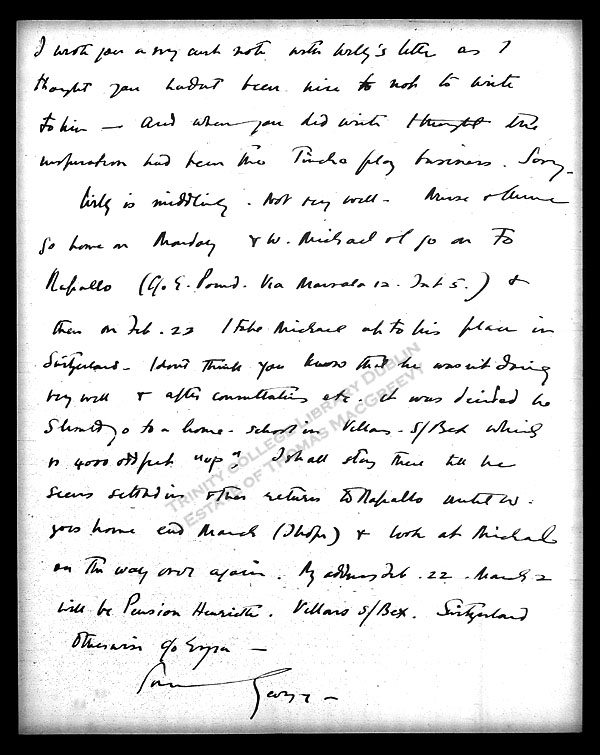 I wrote you a very curt note with Willy's letter as I
thought you hadn't been nice to not to write
to him — and when you did write thought the
inspiration had been the play business. Sorry —
Willy is middling. Not very well — Nurse & Anne
go home on Monday & W. Michael & I go on to
Rapallo (c/o E. Pound. Via Marsala 12. Int 5.) &
then on Feb. 22 I take Michael up to his place in
Switzerland — I don't think you know that he wasn't doing
very well & after consultations etc. it was decided he
should go to a home-school in Villars. S/Bex which
is 4000 odd feet "up". I shall stay there till he
seems settled in & then return to Rapallo until W.
goes home end March (I hope) & look at Michael
on the way over again. My address Feb. 22 - March 2
will be Pension Henriette. Villars S/Bex. Switzerland
otherwise c/o Ezra —
George —
TRINITY COLLEGE LIBRARY DUBLIN
ESTATE OF THOMAS MACGREEVY